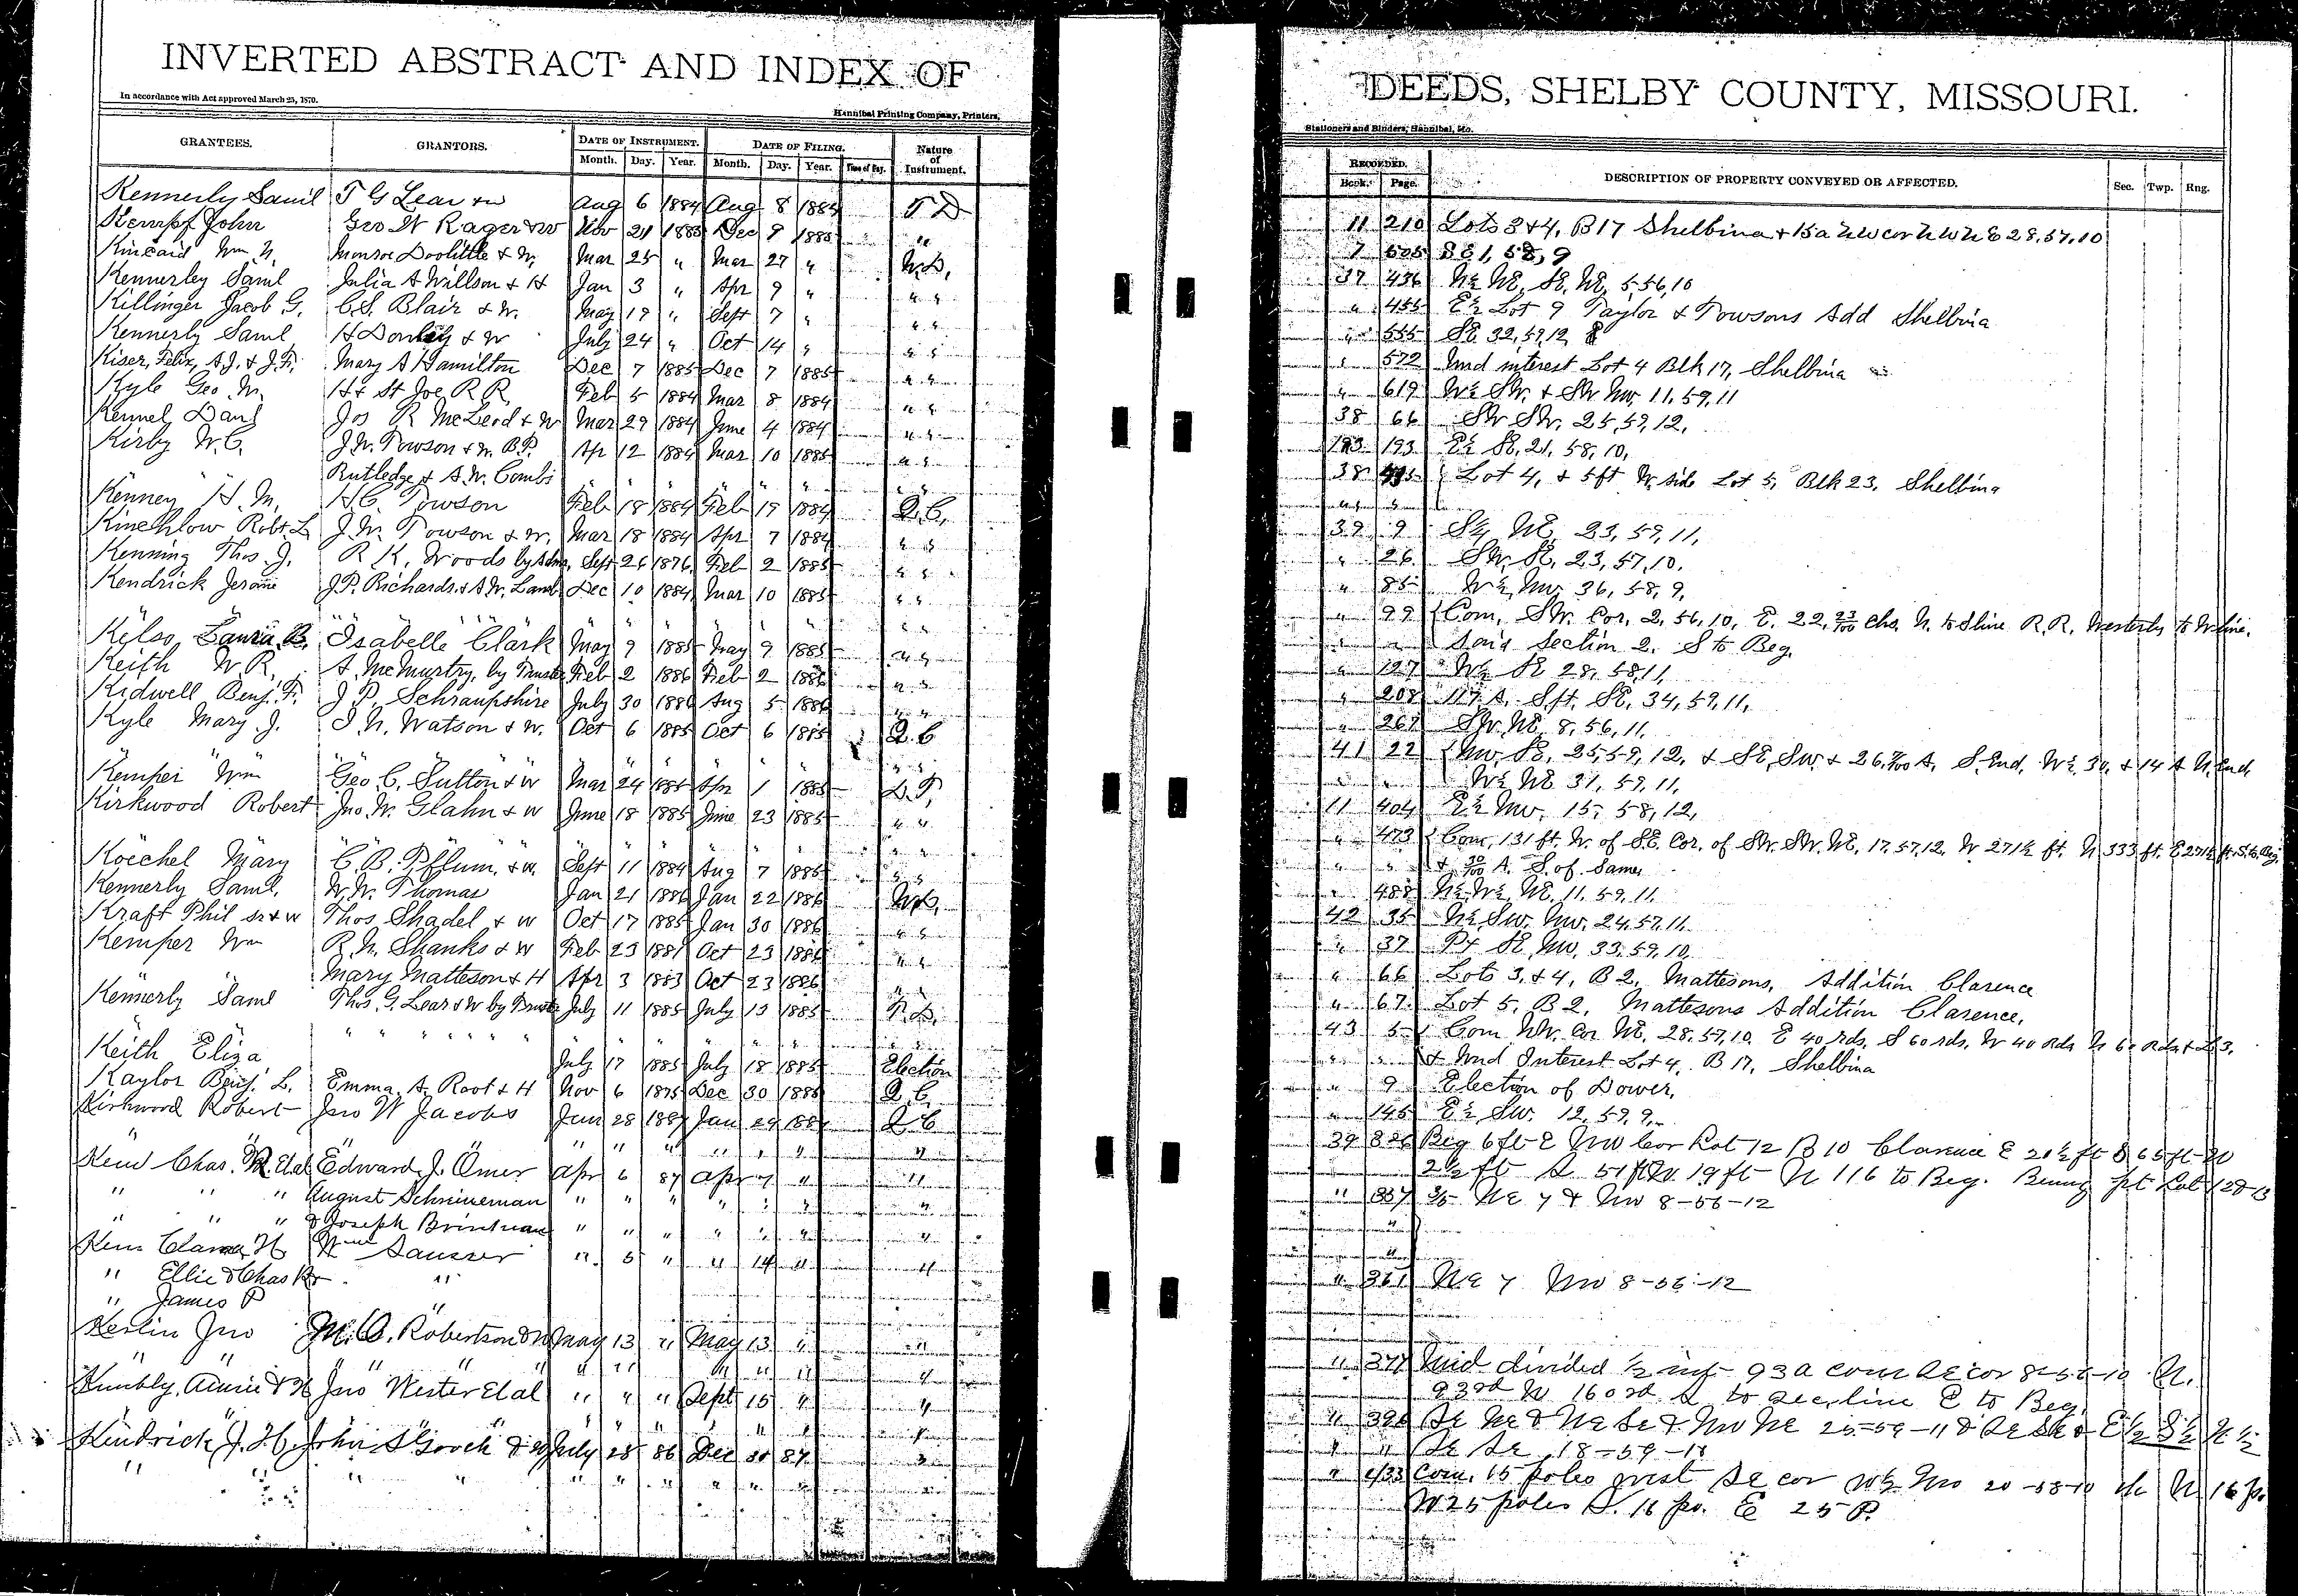 INVERTED ABSTRACT AND INDEX OF
In accordance with Act approved March 25, 1870.
Hannibal Printing Company, Printers,
GRANTEES. GRANTORS. DATE OF INSTRUMENT. DATE OF FILING. Nature of Instrument.
Month. Day. Year. Month. Day. Year. Time of Day.
Kennerly Saml T G Lear & w Aug 6 1884 Aug 8 1884 T D
Kempf John Geo W Rager & w Nov 21 1885 Dec 9 1885 "
Kincaid Wm N. Monroe Doolittle & W. Mar 25 " Mar 27 " W.D.
Kennerley Saml Julia A Willson & H Jan 3 " Apr 9 " " "
Killinger Jacob G. C.S. Blair & W. May 19 " Sept 7 " " "
Kennerly Saml H Donley & W July 24 " Oct 14 " " "
Kiser, Felix, A.J. & J.F. Mary A Hamilton Dec 7 1885 Dec 7 1885 " "
Kyle Geo M. H & St Joe R R. Feb 5 1884 Mar 8 1884 " "
Kennel Danl Jos R McLeod & W Mar 29 1884 June 4 1884 " "
Kirby W.C. J.W. Towson & W. B.P. Apr 12 1884 Mar 10 1885 " "
Rutledge & A.W. Combs " " " " " "
Kenney H. M. H.C. Towson Feb 18 1884 Feb 19 1884 Q.C.
Kinchlow Robt. L J.W. Towson & W. Mar 18 1884 Apr 7 1884 " "
Kenning Thos. J. R K. Woods by Adm. Sept 26 1876 Feb 2 1885 " "
Kendrick Jerome J.P. Richards & A.W. Lamb Dec 10 1884 Mar 10 1885 " "
Kelso, Laura B. Isabelle Clark May 9 1885 May 9 1885 " "
Keith W R. A. McMurtry, by Trustee Feb 2 1886 Feb 2 1886 " "
Kidwell Benj. F. J P. Schraupshire July 30 1886 Aug 5 1886 " "
Kyle Mary J. J N. Watson & W. Oct 6 1885 Oct 6 1885 Q.C
Kemper Wm Geo C. Sutton & W Mar 24 1885 Apr 1 1885 D.T.
Kirkwood Robert Jno. W. Glahn & W June 18 1885 June 23 1885 " "
Koechel Mary C. B. Pflum. & W. Sept 11 1884 Aug 7 1885 " "
Kennerly Saml. W.W. Thomas Jan 21 1886 Jan 22 1886 W.D.
Kraft Phil sr & w Thos. Shadel & W Oct 17 1885 Jan 30 1886 " "
Kemper Wm R.N. Shanks & W Feb 23 1881 Oct 23 1886 " "
Mary Matteson & H Apr 3 1883 Oct 23 1886 " "
Kennerly Saml Thos. G. Lear & W by Trustee July 11 1885 July 13 1885 T.D.
Keith Eliza July 17 1885 July 18 1885 Election
Kaylor Benj. L. Emma A. Root & H Nov 6 1875 Dec 30 1886 Q.C.
Kirkwood Robert Jno W Jacobs Jan 28 1887 Jan 29 1887 Q C
Chas. Edward J. Omer Apr 6 87 Apr 7 " "
" " " August Schnieneman " " " " " " "
" " " & Joseph Brinkman " " " " " " "
Clara H Wm Sausser " 5 " " 14 " "
" Ellie & Chas "
" James P "
Kerlin Jno M. O. Robertson & W May 13 " May 13 " "
Annie & H Jno Wester Etal " " " Sept 15 " "
Kindrick J. H. John S Gooch & W July 28 86 Dec 30 87
DEEDS, SHELBY COUNTY, MISSOURI.
Stationers and Binders, Hannibal, Mo.
RECORDED. DESCRIPTION OF PROPERTY CONVEYED OR AFFECTED. Sec. Twp. Rng.
Book. Page.
11 210 Lots 3 & 4, B 17 Shelbina & 15 a NW cor N W N E 28, 57, 10
7 1, 58, 9
37 436 N½ NE, SE, NE, 5, 56, 10
" 455 E½ Lot 9 Taylor & Towsons Add Shelbina
" 555 SE 32, 59, 12
" 572 Und interest Lot 4 Blk 17, Shelbina
" 619 W½ SW. & SW NW, 11, 59, 11
38 66 SW SW. 25, 59, 12,
193 193 E½ SE, 21, 58, 10,
38 Lot 4, & 5 ft W. side Lot 5, Blk 23, Shelbina
39 9 NE 23, 59, 11,
" 26 SW. SE, 23, 57, 10.
" 85 W½ NW. 36, 58, 9,
" 99 Com. SW. Cor. 2, 56, 10, E. 22, 23/100 Chs. N. to S line R.R. Westerly to W line.
" " Said Section 2. S to Beg.
" 127 W½ SE 28, 58, 11,
" 208 117 A. S pt. SE, 34, 59, 11,
" 267 SW NE 8, 56, 11,
41 22 NW. SE, 25, 59, 12, & SE, SW. & 26 A, S. End, W½, 30, & 14 A N. End,
" " W½ NE 31, 59, 11,
11 404 E½ NW. 15, 58, 12,
" 473 Com, 131 ft. W. of S.E. Cor. of SW. SW. NE, 17, 57, 12, W 271½ ft. N 333 ft. E 271½ ft. S. to Beg.
" " & A. S. of Same.
" 488 N½ W½ NE, 11, 59, 11.
42 35 N½ SW. NW. 24, 57, 11.
" 37 Pt SE NW. 33, 59, 10
" 66 Lots 3, & 4, B 2, Mattesons, Addition Clarence
" 67 Lot 5, B 2, Mattesons Addition Clarence,
43 5 Com NW. Cor NE, 28, 57, 10, E 40 rds. S 60 rds. W 40 rds N 60 Rds & L 3,
" " & Und Interest Lot 4, B 17, Shelbina
" 9 Election of Dower,
" 145 E½ SW. 12, 59, 9,
39 326 Beg 6 ft E NW Cor Lot 12 B 10 Clarence E 20½ ft S 65 ft W
2½ ft S 51 ft W 19 ft N 116 to Beg. Being pt Lot 12
" 357 NE 7 & NW 8-56-12
" 361 NE 7 NW 8-56-12
" 377 Und divided ½ int 93 a com SE cor 8-56-10 N.
93 rd W 160 rd S to sec. line E to Beg.
" 396 SE NE & NE SE & NW NE 25-59-11 & SE SW & E½ S½ N½
" " SE SE, 18-59-11
" 433 Com. 15 poles west SE cor W½ NW 20-58-10 th N 16 po.
W 25 poles S. 16 po. E 25 P.